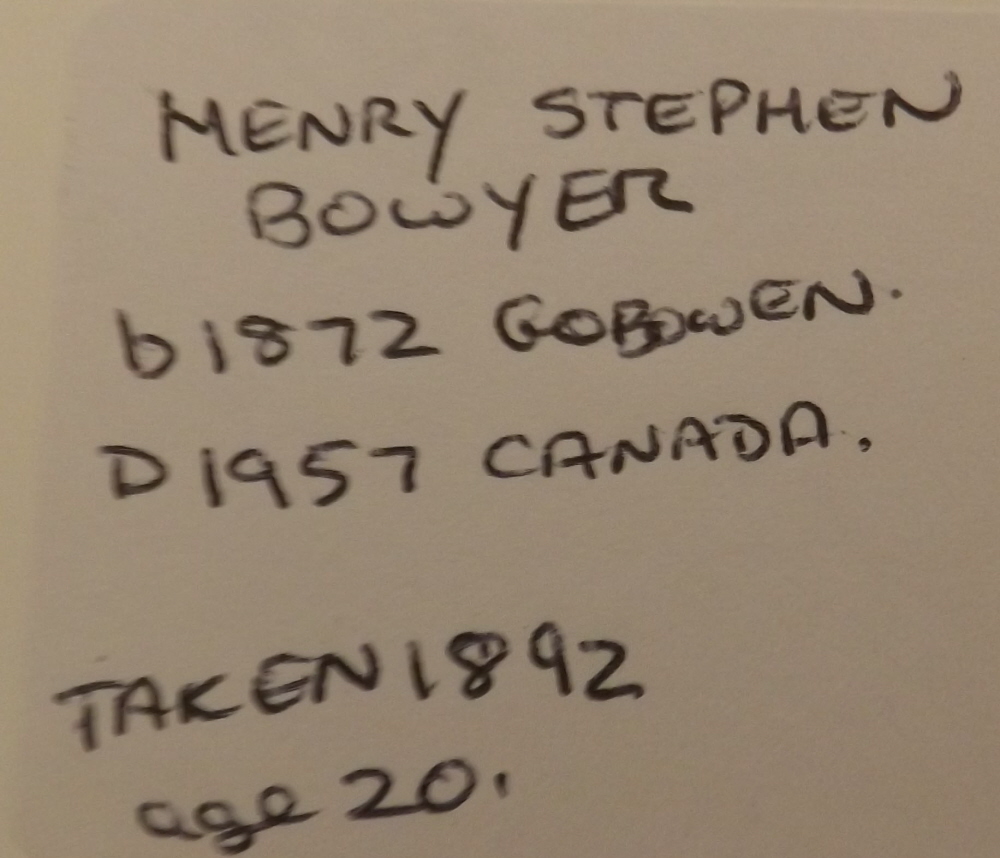 HENRY STEPHEN
BOWYER
b 1872 GOBOWEN.
D 1957 CANADA.
TAKEN 1892
age 20.